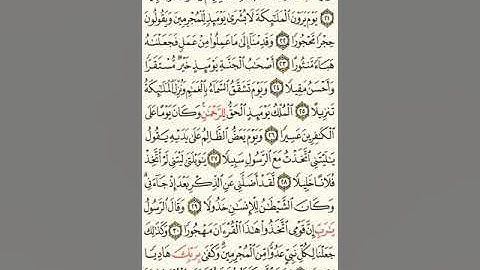 ﴿٢١﴾ يَوْمَ يَرَوْنَ ٱلْمَلَٰٓئِكَةَ لَا بُشْرَىٰ يَوْمَئِذٍ لِّلْمُجْرِمِينَ وَيَقُولُونَ
حِجْرًا مَّحْجُورًا ﴿٢٢﴾ وَقَدِمْنَآ إِلَىٰ مَا عَمِلُوا۟ مِنْ عَمَلٍ فَجَعَلْنَٰهُ
هَبَآءً مَّنثُورًا ﴿٢٣﴾ أَصْحَٰبُ ٱلْجَنَّةِ يَوْمَئِذٍ خَيْرٌ مُّسْتَقَرًّا
وَأَحْسَنُ مَقِيلًا ﴿٢٤﴾ وَيَوْمَ تَشَقَّقُ ٱلسَّمَآءُ بِٱلْغَمَٰمِ وَنُزِّلَ ٱلْمَلَٰٓئِكَةُ
تَنزِيلًا ﴿٢٥﴾ ٱلْمُلْكُ يَوْمَئِذٍ ٱلْحَقُّ لِلرَّحْمَٰنِ وَكَانَ يَوْمًا عَلَى
ٱلْكَٰفِرِينَ عَسِيرًا ﴿٢٦﴾ وَيَوْمَ يَعَضُّ ٱلظَّالِمُ عَلَىٰ يَدَيْهِ يَقُولُ
يَٰلَيْتَنِى ٱتَّخَذْتُ مَعَ ٱلرَّسُولِ سَبِيلًا ﴿٢٧﴾ يَٰوَيْلَتَىٰ لَيْتَنِى لَمْ أَتَّخِذْ
فُلَانًا خَلِيلًا ﴿٢٨﴾ لَّقَدْ أَضَلَّنِى عَنِ ٱلذِّكْرِ بَعْدَ إِذْ جَآءَنِى
وَكَانَ ٱلشَّيْطَٰنُ لِلْإِنسَٰنِ خَذُولًا ﴿٢٩﴾ وَقَالَ ٱلرَّسُولُ
يَٰرَبِّ إِنَّ قَوْمِى ٱتَّخَذُوا۟ هَٰذَا ٱلْقُرْءَانَ مَهْجُورًا ﴿٣٠﴾ وَكَذَٰلِكَ
جَعَلْنَا لِكُلِّ نَبِىٍّ عَدُوًّا مِّنَ ٱلْمُجْرِمِينَ وَكَفَىٰ بِرَبِّكَ هَادِيًا